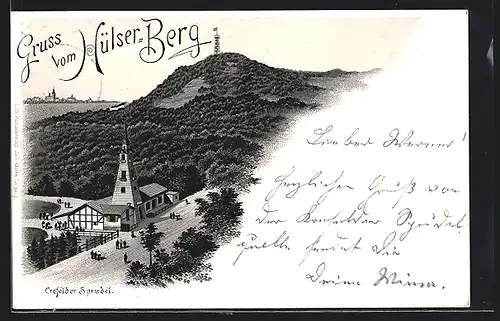 Gruss
vom Hülser-Berg
Crefelder Sprudel.
Lieber Werner!
Herzlichen Gruß von
der Krefelder Sprudel
quelle sendet Dir
Deine Minna.